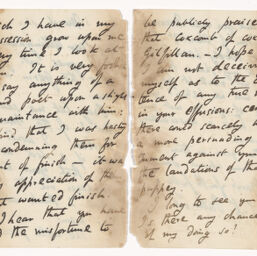 I have in my
grow upon me
thing I look at
It is very
say anything of a
poet upon a slight
acquaintance with him:
find that I was hasty
condemning them for
want of finish — it was
appreciation of the
that wanted finish.
I hear that you have
had the misfortune to
be publicly praised
that coxcomb of coxcombs
Gilfillan. I hope
I am not deceiving
myself as to the
of any true
in your effusions:
there could scarcely
a more persuading
against you
the laudations of that
puppy.
I long to see you
Is there any chance
of my doing so?